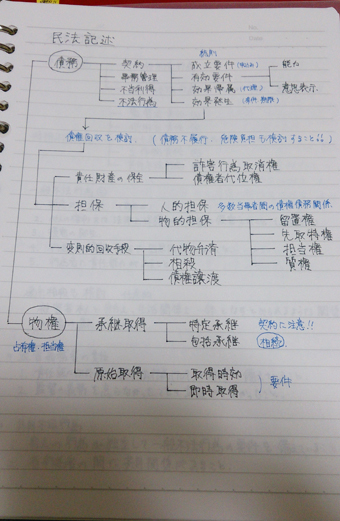 民法記述
総則
債務 契約 成立要件(申込み) 能力
事務管理 有効要件 意思表示
不当利得 効果帰属(代理)
不法行為 効果発生(条件・期限)
債権回収を検討 (債務不履行・危険負担も検討すること!!)
責任財産の保全 詐害行為取消権
債権者代位権
担保 人的担保 多数当事者間の債権債務関係
物的担保 留置権
先取特権
変則的回収手段 代物弁済 抵当権
相殺 質権
債権譲渡
物権 承継取得 特定承継 契約に注意!!
占有権・抵当権 包括承継 相続
原始取得 取得時効 要件
即時取得